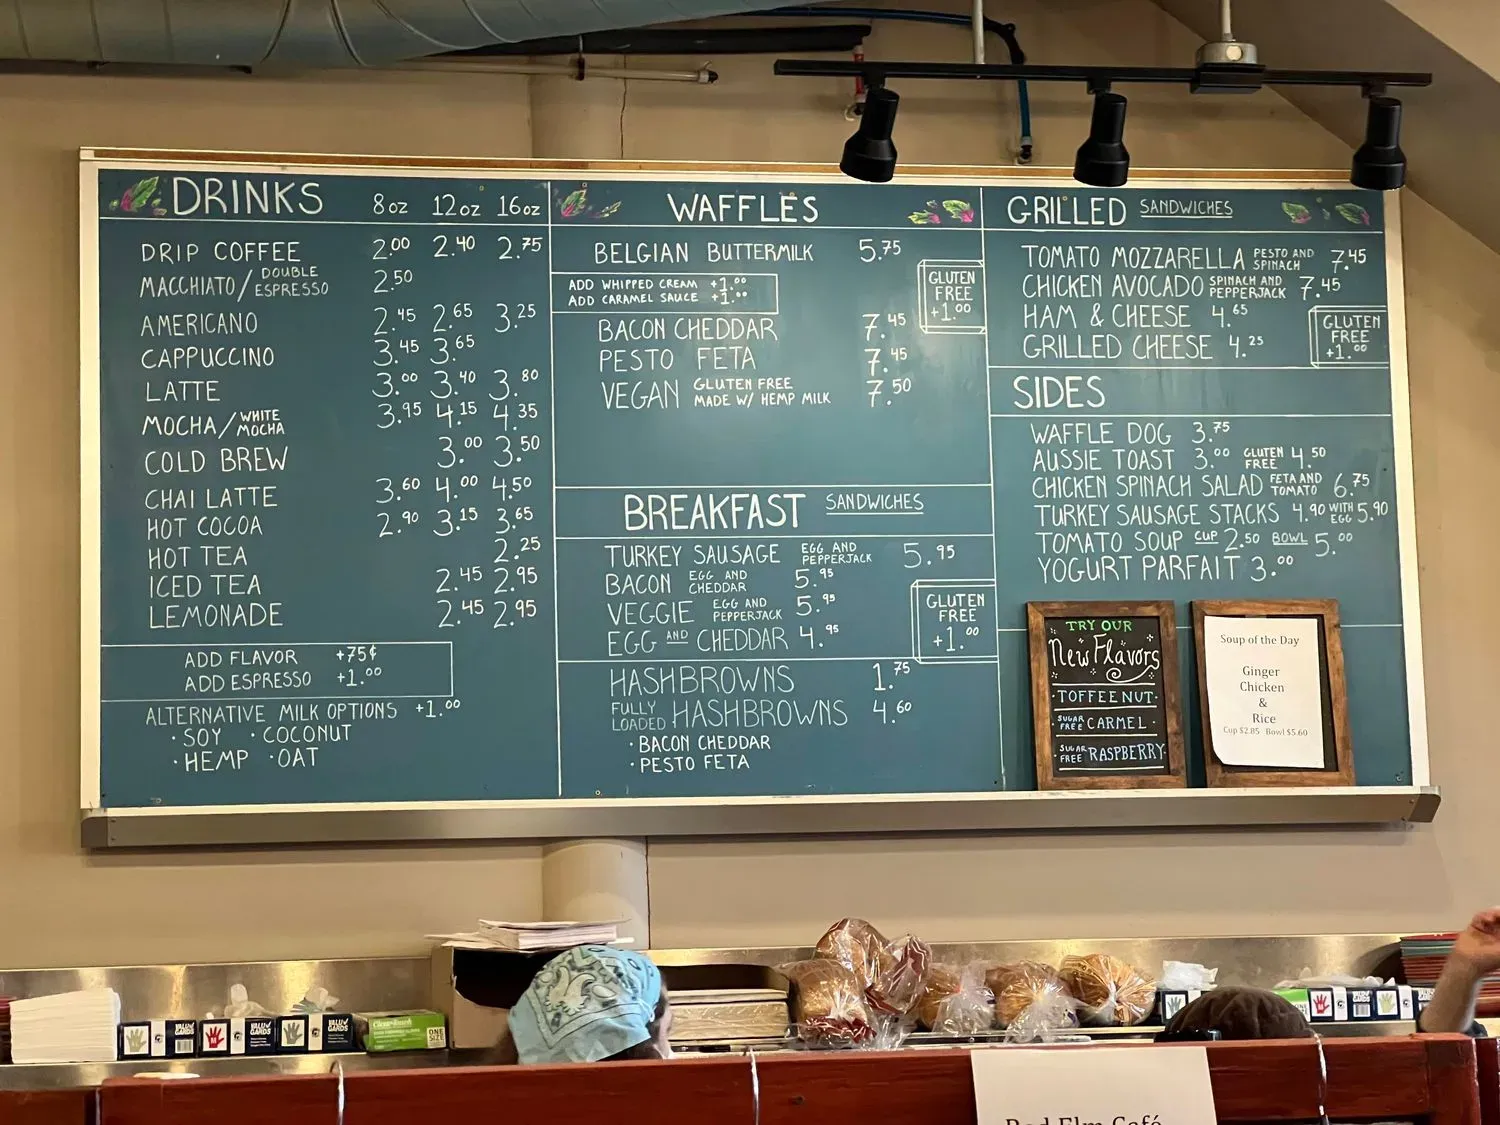 DRINKS 8oz 12oz 16oz
DRIP COFFEE 2.00 2.40 2.75
MACCHIATO/DOUBLE ESPRESSO 2.50
AMERICANO 2.45 2.65 3.25
CAPPUCCINO 3.45 3.65
LATTE 3.00 3.40 3.80
MOCHA/WHITE MOCHA 3.95 4.15 4.35
COLD BREW 3.00 3.50
CHAI LATTE 3.60 4.00 4.50
HOT COCOA 2.90 3.15 3.65
HOT TEA 2.25
ICED TEA 2.45 2.95
LEMONADE 2.45 2.95
ADD FLAVOR +75¢
ADD ESPRESSO +1.00
ALTERNATIVE MILK OPTIONS +1.00
· SOY · COCONUT
· HEMP · OAT
WAFFLES
BELGIAN BUTTERMILK 5.75
ADD WHIPPED CREAM +1.00
ADD CARAMEL SAUCE +1.00
GLUTEN
FREE
+1.00
BACON CHEDDAR 7.45
PESTO FETA 7.45
VEGAN GLUTEN FREE MADE W/ HEMP MILK 7.50
BREAKFAST SANDWICHES
TURKEY SAUSAGE EGG AND PEPPERJACK 5.95
BACON EGG AND CHEDDAR 5.95
VEGGIE EGG AND PEPPERJACK 5.95
EGG AND CHEDDAR 4.95
GLUTEN
FREE
+1.00
HASHBROWNS 1.75
FULLY LOADED HASHBROWNS 4.60
· BACON CHEDDAR
· PESTO FETA
GRILLED SANDWICHES
TOMATO MOZZARELLA PESTO AND SPINACH 7.45
CHICKEN AVOCADO SPINACH AND PEPPERJACK 7.45
HAM & CHEESE 4.65
GRILLED CHEESE 4.25
GLUTEN
FREE
+1.00
SIDES
WAFFLE DOG 3.75
AUSSIE TOAST 3.00 GLUTEN FREE 4.50
CHICKEN SPINACH SALAD FETA AND TOMATO 6.75
TURKEY SAUSAGE STACKS 4.90 WITH EGG 5.90
TOMATO SOUP CUP 2.50 BOWL 5.00
YOGURT PARFAIT 3.00
TRY OUR
New Flavors
· TOFFEE NUT ·
· SUGAR FREE CARMEL ·
· SUGAR FREE RASPBERRY ·
Soup of the Day
Ginger
Chicken
&
Rice
Cup $2.85 Bowl $5.60
ONE
SIZE
Red Elm Café